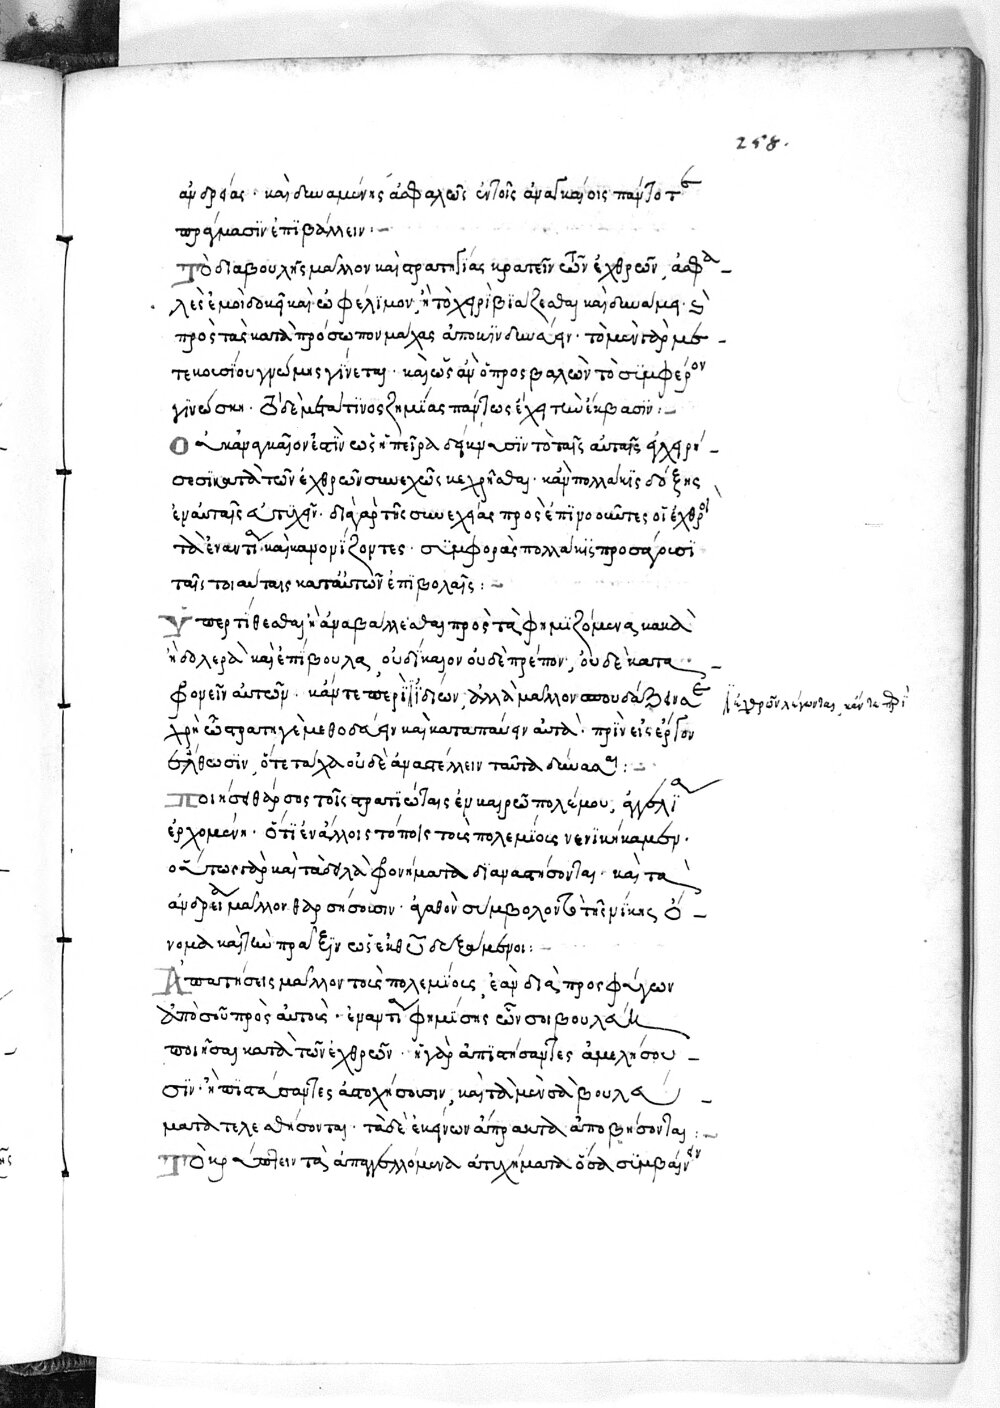 258.
ἀνδρείας · καὶ δυναμένης ἀσφαλῶς ἐν τοῖς ἀναγκαίοις παντὸς
πράγμασϊν ἐπϊβάλλειν :
Τὸ διὰ βουλῆς μᾶλλον καὶ στρατηγίας κρατεῖν τῶν ἐχθρῶν, ἀσφα
λὲς ἐμοὶ δοκεῖ καὶ ὠφέλϊμον, ἢ τὸ χειρὶ βϊάζεσθαι καὶ δυνάμει · καὶ
πρὸς τὰς κατὰ πρόσωπον μάχας ἀποκϊνδυνεύειν · τὸ μὲν γὰρ με
τ ἐκουσίου γνώμης γίνεται · καὶ ὡς ἂν ὁ προσβαλὼν τὸ συμφέρον
γϊνώσκη · τὸ δὲ μετὰ τϊνος ζημίας πάντως ἔχει τὴν ἔκβασϊν :
Οὐκ ἀναγκαῖον ἐστὶν ὡς ἡ πεῖρα δείκνυσϊν τὸ ταῖς αὐταῖς ἐγχειρή
σεσϊ κατὰ τῶν ἐχθρῶν συνεχῶς κεχρῆσθαι · κἂν πολλάκϊς δόξης
ἐν αὐταῖς εὐτυχεῖν · διὰ γὰρ τῆς συνεχείας προσεπϊνοοῦντες οἱ ἐχθροὶ
τὰ ἐναντία καὶ κανονίζοντες · συμφορὰς πολλάκϊς προσάγουσϊ
ταῖς τοιαύταις κατ αὐτῶν ἐπϊβολαῖς :
Ὑπερτίθεσθαι ἢ ἀναβάλλεσθαι πρὸς τὰ φημϊζόμενα κακὰ
ἢ δολερὰ καὶ ἐπίβουλα, οὐ δίκαιον οὐδὲ πρέπον, οὐδὲ κατα
φρονεῖν αὐτῶν · κἄν τε περὶ ἰδίων, ἀλλὰ μᾶλλον σπουδάζειν σε
ἐχθρῶν λέγωνται, κἄν τε περὶ
χρὴ ὦ στρατηγὲ μεθοδεύειν καὶ καταπαύειν αὐτὰ · πρὶν εἰς ἔργον
ἔλθωσϊν, ὅτε τάχα οὐδὲ ἀναστέλλειν ταῦτα δύνασαι :
Ποιήσει θάρσος τοῖς στρατϊώταις ἐν καιρῶ πολέμου, ἀγγελία
ἐρχομένη · ὅτϊ ἐν ἄλλοις τόποις τοὺς πολεμίους νενϊκήκαμεν ·
οὕτως γὰρ καὶ τὰ δειλὰ φρονήματα διαναστήσονται · καὶ τὰ
ἀνδρεῖα μᾶλλον θαρσήσουσιν · ἀγαθὸν σύμβολον τὸ τῆς νίκης ὄ
νομα καὶ τὴν πρᾶξϊν ὡς ἐκ θεοῦ δεξάμενοι :
Ἀπατήσεις μᾶλλον τοὺς πολεμίους, ἐὰν διὰ προσφύγων
ἀπὸ σοῦ πρὸς αὐτοὺς · ἐναντία φημίσης ὧν σοι βουλὴ
ποιῆσαι κατὰ τῶν ἐχθρῶν · ἢ γὰρ ἀπϊστήσαντες ἀμελήσου
σϊν · ἢ πϊστεύσαντες ἀστοχήσουσιν, καὶ τὰ μὲν σὰ βουλεύ
ματα τελεσθήσονται · τὰ δὲ ἐκείνων ἄπρακτα ἀποβήσονται :
Τὸ κρύπτειν τὰ ἀπαγγελλόμενα ἀτυχήματα ὅσα συμβαίνειν